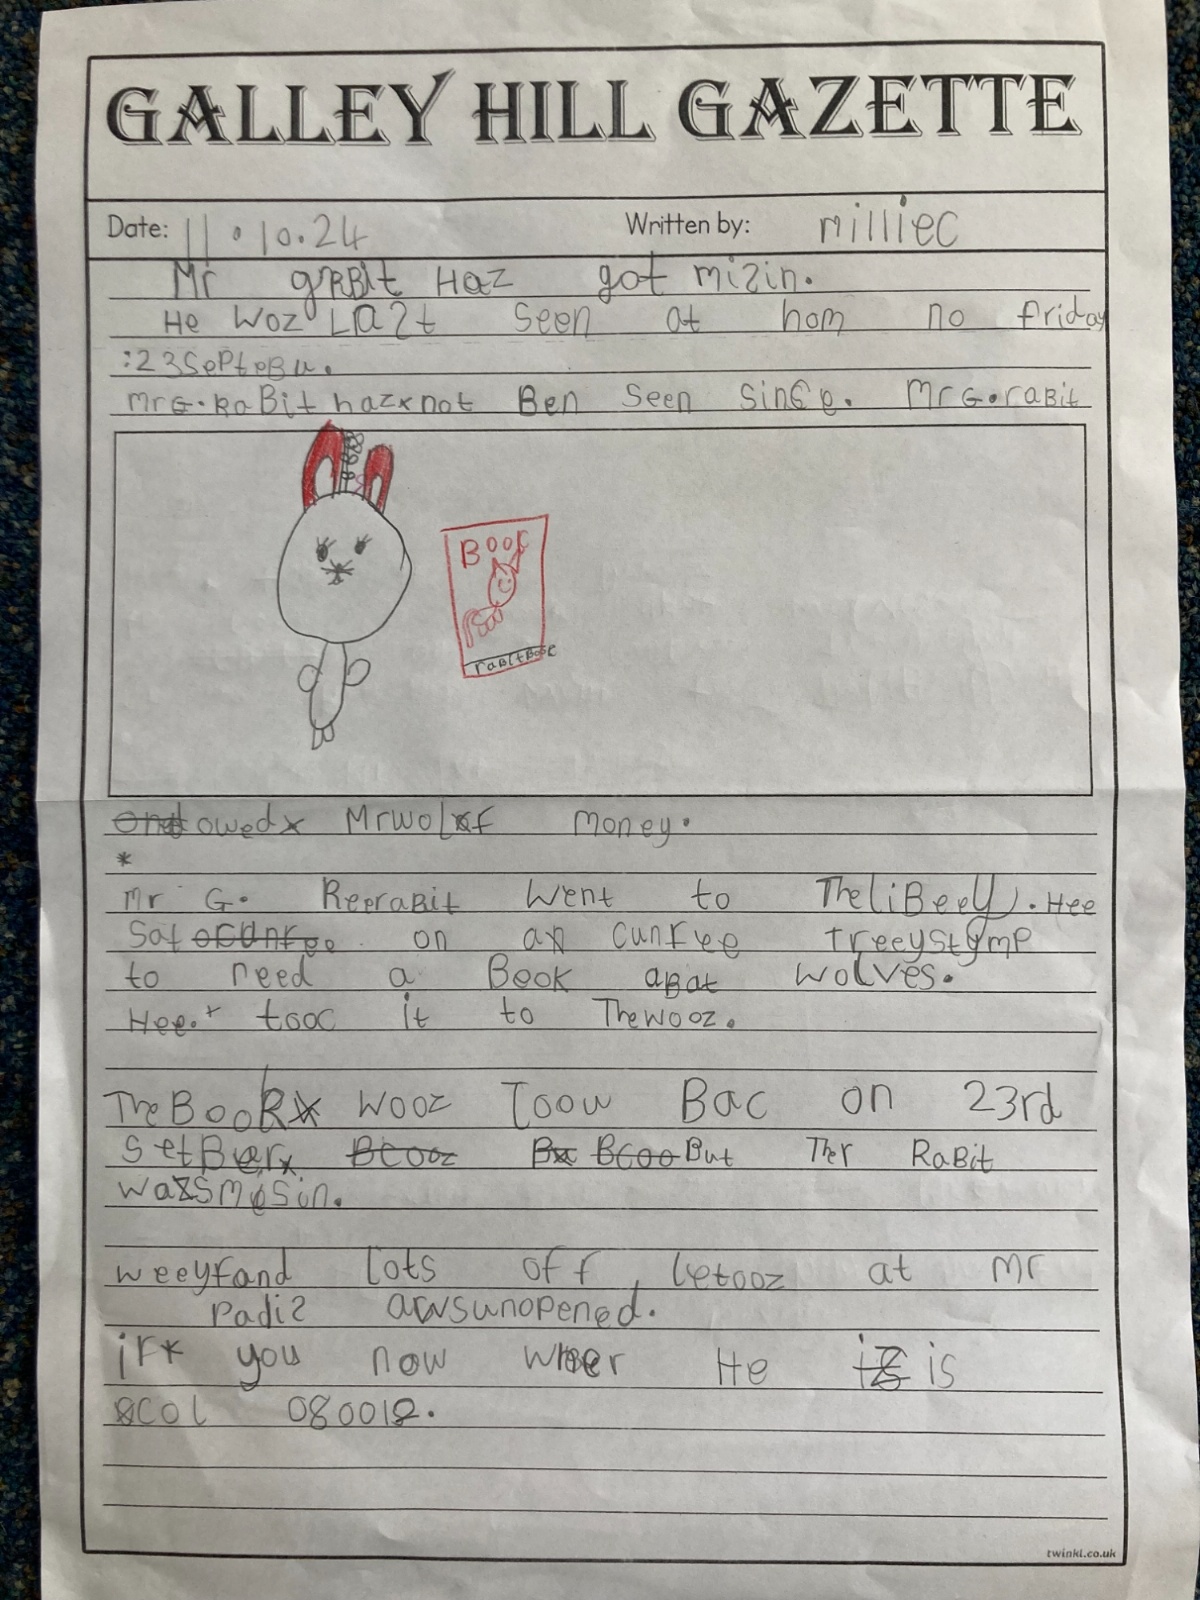 GALLEY HILL GAZETTE
Date: 11.10.24 Written by: milliec
Mr gRBit Haz got mizin.
He woz LAzt seen at hom no friday
:23SePteBu.
Mr G.RaBit haz not Ben Seen Sinc e. Mr G.raBit
Book
raBitBooc
owed Mrwolf money.
*
Mr G. RerraBit went to The liBeely. Hee
Sat on an cunfee treeystymp
to reed a Book aBat wolves.
Hee. tooc it to Thewooz.
The BooK wooz Toow Bac on 23rd
SetBer But Ther RaBit
wazsmisin.
weeyfand lots off letooz at Mr
radiz awsunopened.
if* you now wheer He is
col 080012.
twinkl.co.uk